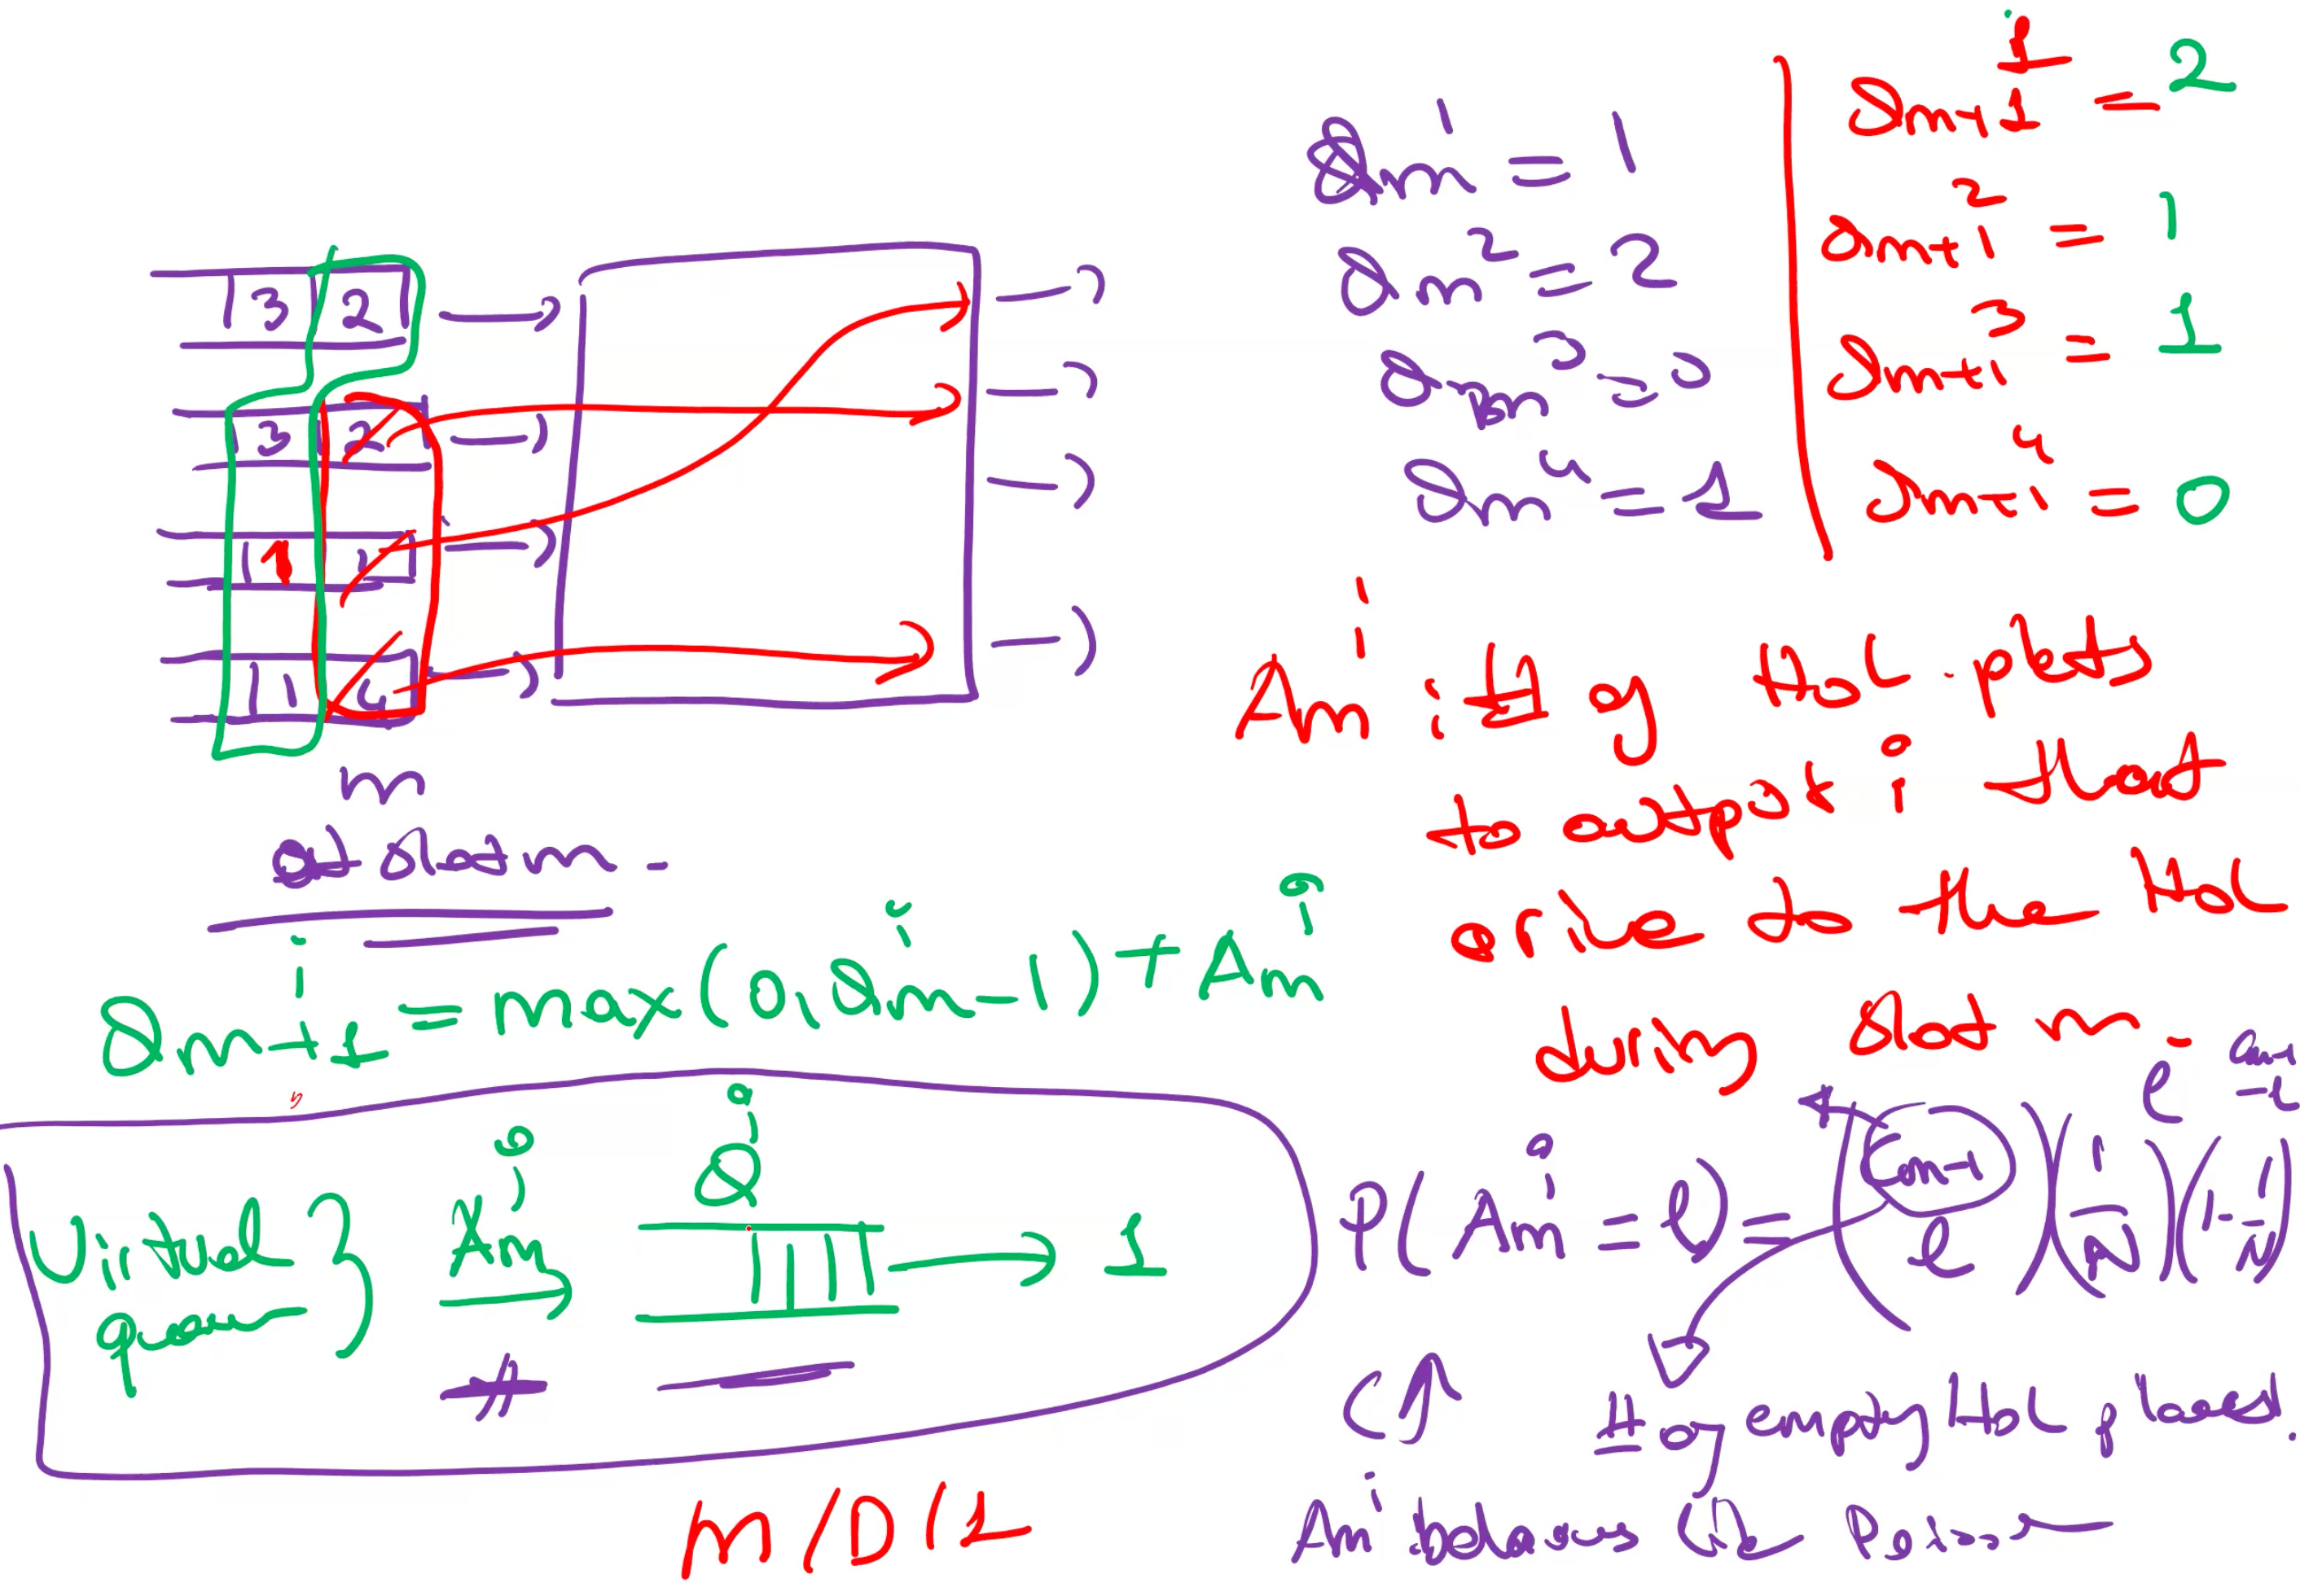 3 2
3 2
1 2
1 4
m
at slot m -
Q_m^1 = 1
Q_m^2 = 2
Q_m^3 = 0
Q_m^4 = 1
Q_{m+1}^1 = 2
Q_{m+1}^2 = 1
Q_{m+1}^3 = 1
Q_{m+1}^4 = 0
A_m^i : # of HOL pkts
to output i that
arive to the HOL
during slot m -
Q_{m+1}^i = max(0, Q_m^i - 1) + A_m^i
Virtual
queue
A_m^i
Q^i
1
M/D/1
P(A_m^i = l) =
l
# of empty HOL places.
A_m^i behaves like Poisson